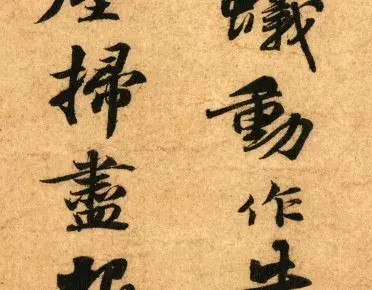 蟻動作牛
掃盡